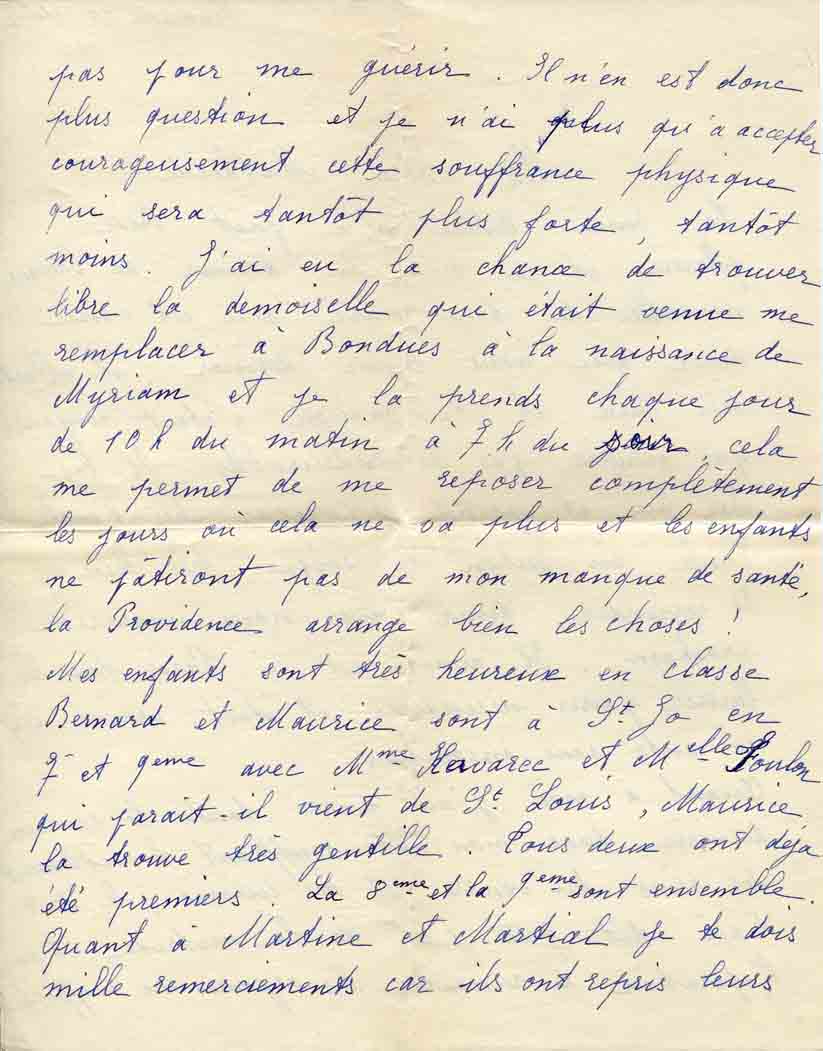 pas pour me guérir. Il n'en est donc
plus question et je n'ai plus qu'à accepter
courageusement cette souffrance physique
qui sera tantôt plus forte, tantôt
moins. J'ai eu la chance de trouver
libre la demoiselle qui était venue me
remplacer à Bondues à la naissance de
Myriam et je la prends chaque jour
de 10 h du matin à 7 h du soir, cela
me permet de me reposer complètement
les jours où cela ne va plus et les enfants
ne pâtiront pas de mon manque de santé,
la Providence arrange bien les choses !
Mes enfants sont très heureux en classe
Bernard et Maurice sont à St Jo en
7e et 9eme avec Mme et Mlle Toulon
qui parait-il vient de St Louis, Maurice
la trouve très gentille. Tous deux ont déja
été premiers. La 8eme et la 9eme sont ensemble.
Quant à Martine et Martial je te dois
mille remerciements car ils ont repris leurs